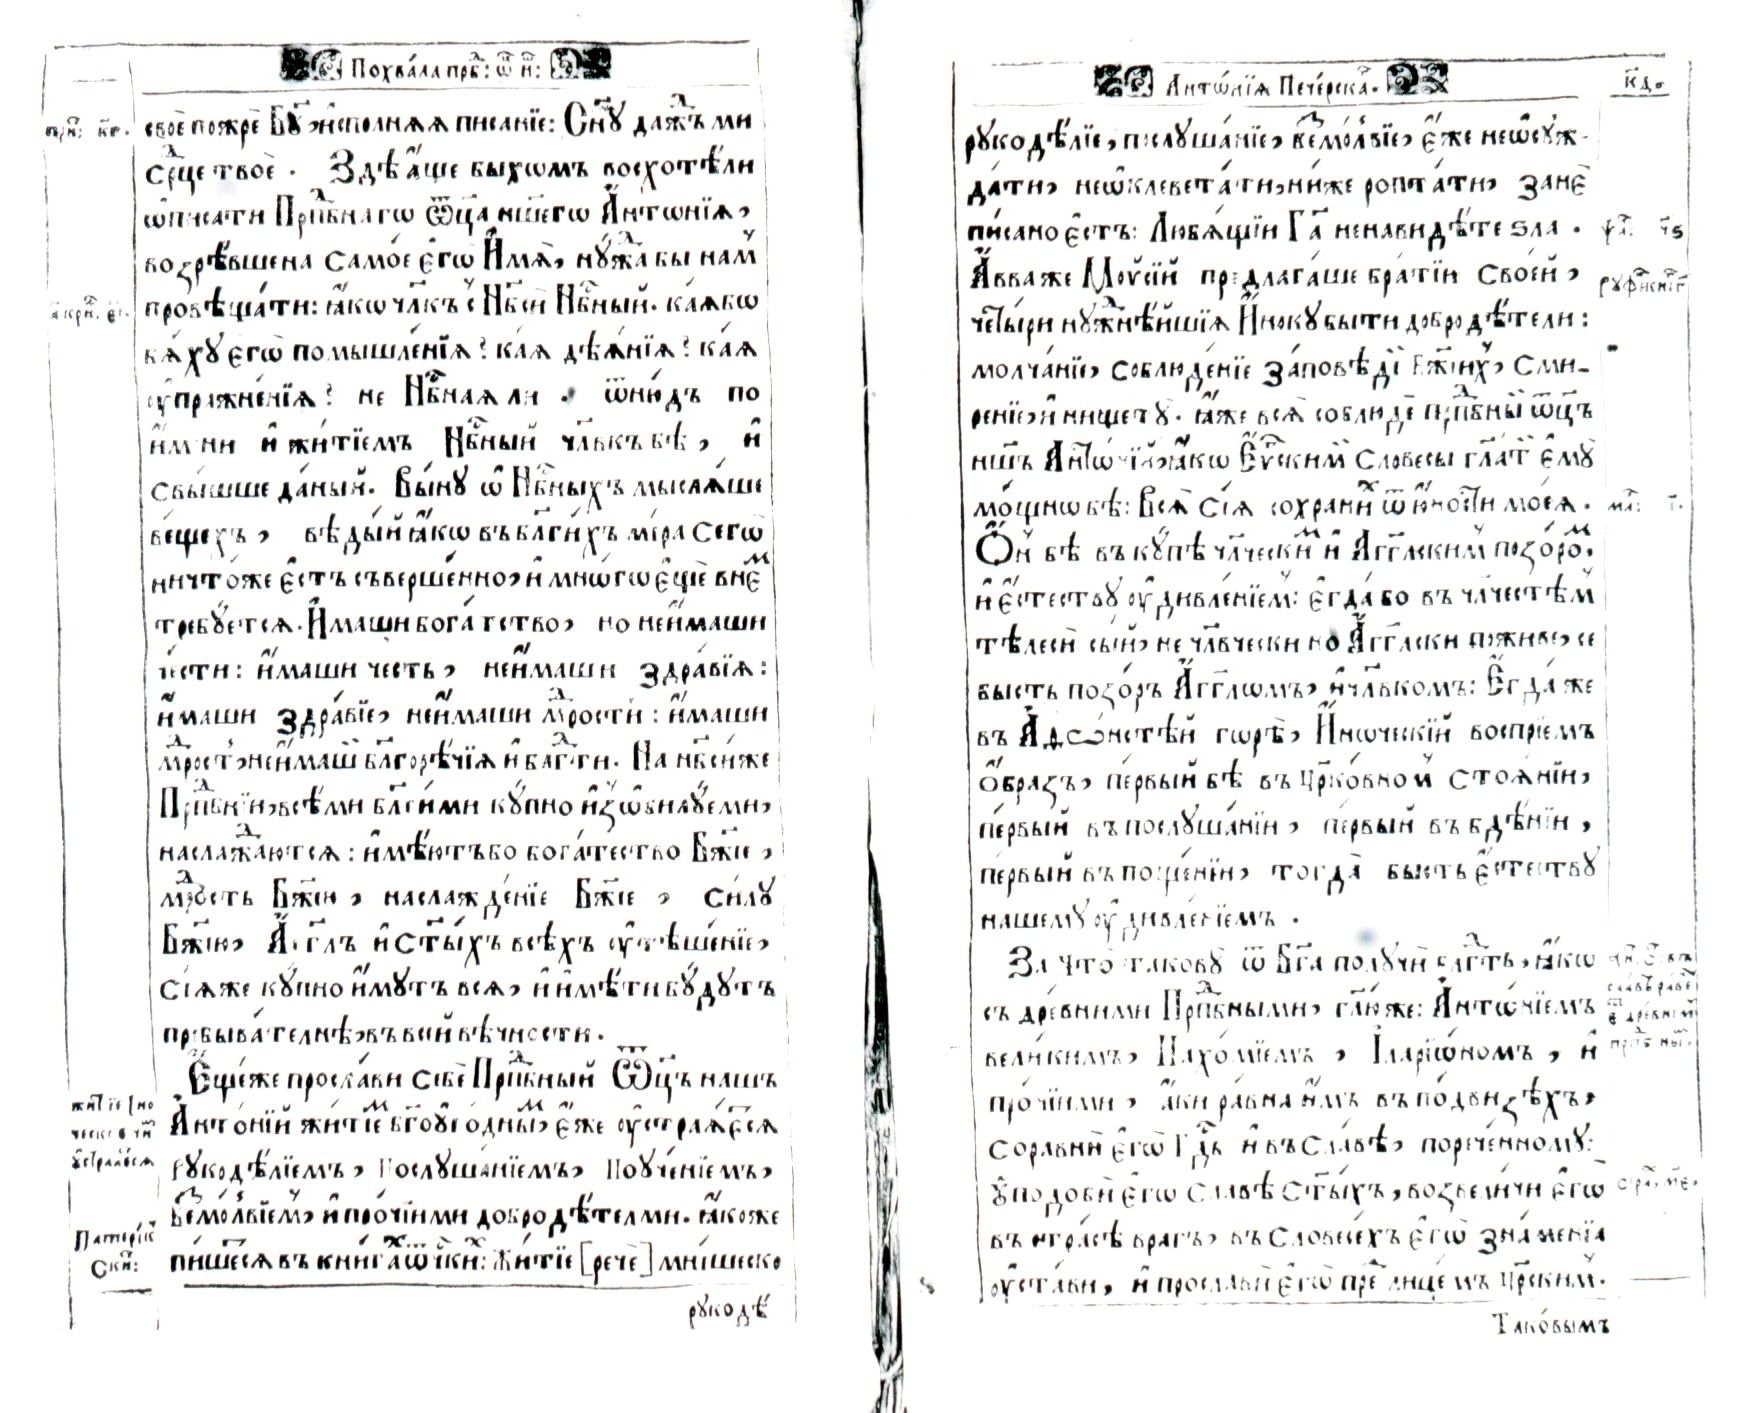 Похва́ла прпⷣб: ѿ н҃:
своѐ пожрѐ Бг҃ꙋ, и҆сполнѧѧ писанїе: Сн҃ꙋ даⷤдъ ми
срⷣце твоѐ. Здѣ а҆́ще быхѡмъ восхотѣ́ли
ѡ҆писати Прпⷣбнагѡ ѿц҃а нш҃егѡ А҆нтѡнїѧ,
возрѣ́вше на само́е є҆гѡ̀ И҆́мѧ, нꙋ́жⷣа бы наⷨ
провѣща́ти: ꙗ҆́кѡ чл҃къ с̾ Нб҃сѐ Нбⷭ҇ный. ка́ѧ бѡ
бѧ́хꙋ є҆гѡ̀ помышле́нїѧ? ка́ѧ дѣѧ́нїѧ? ка́ѧ
ᲂу҆пражне́нїѧ? не Нбⷭ҇наѧ ли. ѿню́дъ по
и҆́мени и҆ жи́тїемъ Нбⷭ҇ный чл҃вкъ бѣ, и҆
свы́шше да́ный. Вы́нꙋ ѡ҆ Нбⷭ҇ныхъ мы́слѧше
ве́щехъ, вѣ́дый ꙗ҆́кѡ въ бл҃ги́хъ мі́ра сегѡ̀
ничто́же є҆́стъ съверше́нно, и҆ мнѡ́гѡ є҆щѐ внеⷨ
тре́бꙋетсѧ. И҆́маши бога́тство, но не и҆́маши
че́сти: и҆́маши честь, не и҆́маши здра́вїѧ:
и҆́маши здра́вїе, не и҆́маши мⷣрости: и҆́маши
мⷣрость, не и҆́маши бл҃горѣ́чїѧ и҆ блгⷣти. На нб҃си́ же
Прпⷣбнїи, всѣ́ми бл҃ги́ми кꙋ́пно и҆зѡби́лꙋемы,
наслажⷣа́ютсѧ: и҆мѣ́ютъ бо бога́тество Бж҃їе,
мⷣрость Бж҃їю, наслажде́нїе Бж҃їе, си́лꙋ
Бж҃їю, А҆́гг҃лъ и҆ ст҃ы́хъ всѣ́хъ ᲂу҆тѣше́нїе,
сїѧ́ же кꙋ́пно и҆́мꙋтъ всѧ̀, и҆ и҆мѣ́ти бꙋ́дꙋтъ
пребыва́телнѣ, въ всей вѣ́чности.
Є҆ще́же просла́ви себѐ Прпⷣбный Ѿц҃ъ нашъ
А҆нто́нїй жи́тїеⷨ бг҃оꙋго́дныⷨ, є҆́же ᲂу҆строѧ́ѐсѧ
рꙋкодѣ́лїемъ, Послꙋша́нїемъ, Поꙋче́нїемъ,
Безмо́лвїеⷨ, и҆ про́чїими добродѣ́телми. ꙗ҆́коже
пи́шетсѧ въ кни́гаⷯ ѿчⷭ҇киⷯ: Жи́тїе [речѐ] мни́шеско
рꙋкодѣ́
при: кг.
а҃ кори҃: є҃ı.
житїе І҆но
ческое чи́
ᲂу҆строѧ́есѧ
Патері́к
Ски:
А҆нтѡ́нїѧ Пече́рскаⷢ.
к҃д.
рꙋкодѣ́лїе, послꙋша́нїе, безмо́лвїе, є҆́же не ѡ҆сꙋж-
да́ти, не ѡ҆клевета́ти, ниже ропта́ти, занѐ
пи́сано є҆́стъ: Любѧ́щїи Гⷭ҇а ненави́дѣте ѕла.
А҆́вва же Мѡѷсі́й предлага́ше бра́тїи свое́й,
четы́ри нꙋжⷣнѣ́йшїѧ И҆́нокꙋ бы́ти добродѣ́тели:
молча́нїе, соблюде́нїе за́повѣдїй Бж҃їиⷯ, Сми-
ре́нїе, и҆ нищетꙋ̀. ꙗ҆́же всѧ̀ соблюдѐ прпⷣбный ѿц҃ъ
нш҃ъ А҆нтѡ́нїй, ꙗ҆́кѡ Є҆ѵⷢ҇скиⷨ словесы̀ гл҃атⷯ є҆мꙋ̀
мо́щнѡ бѣ: Всѧ̀ сїѧ̀ сохрани́хъ ѿ ю҆́ности моеѧ̀.
Ѻ҆́н бѣ въ кꙋ́пѣ чл҃ческиⷨ и҆ А҆гг҃лскиⷨ позо́роⷨ,
и҆ є҆стествꙋ̀ ᲂу҆дивле́нїеⷨ: є҆гда́ бо въ чл҃честѣⷨ
тѣлесѝ сы́й, не чл҃вчески но А҆́гг҃лски пожи́ве, се
бысть позо́ръ А҆́гг҃лѡмъ, и҆ чл҃вкомъ: Є҆гда́ же
въ А҆ѳѡ́нстѣй гѡрѣ̀, И҆́нѡческїй воспрїемъ
ѻ҆́бразъ, пе́рвый бѣ въ цр҃ко́вноⷨ стоѧ́нїи,
пе́рвый въ послꙋша́нїи, пе́рвый въ бдѣ́нїи,
пе́рвый въ поще́нїи, тогда̀ бысть є҆стествꙋ̀
нашемꙋ̀ ᲂу҆дивле́нїемъ.
За что̀ таковꙋ̀ ѿ Бг҃а полꙋчѝ блгⷣть, ꙗ҆́кѡ
съ дре́вними Прпⷣбными, гл҃ю́же: А҆нтѡ́нїемъ
вели́кимъ, Пахо́мїемъ, І҆ларїѡ́номъ, и҆
про́чїими, а҆́ки ра́вна и҆́мъ въ по́двизѣхъ,
соравнѝ є҆гѡ̀ Гдⷭ҇ь и҆ въ сла́вѣ, порече́нномꙋ:
Оу҆подо́би є҆гѡ̀ сла́вѣ Ст҃ы́хъ, возвели́чи є҆гѡ̀
въ стра́сѣ врагъ, въ словесе́хъ є҆гѡ̀ зна́менїѧ
ᲂу҆ста́ви, и҆ просла́ви є҆гѡ̀ преⷣ лице́мъ Цр҃скиⷨ.
Тако́вымъ
ѱа: ч҃ѕ
рꙋфи́нї
ма: і҃.
сла́вѣ ра́ве
дре́вниⷨ
сра: ме҃.